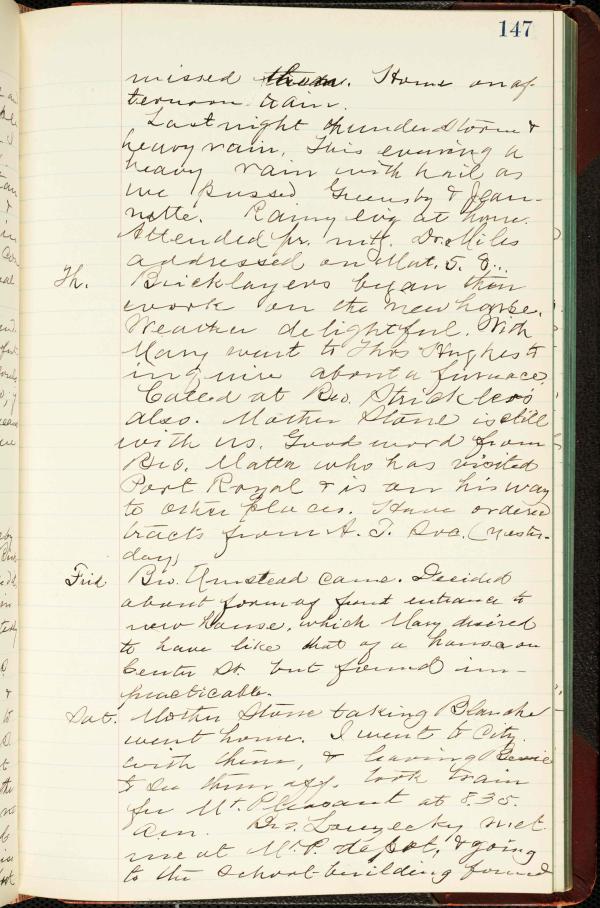 147
missed them. Home on af-
ternoon train.
Last night thunderstorm &
heavy rain. This evening a
heavy rain with hail as
we passed Greensby & Jean-
nette. Rainy evg at home.
Attended pr. mtg. Dr. Miles
addressed on Mat. 5. 8...
Th. Bricklayers began their
work on the new house.
Weather delightful. With
Mary went to Thos Hughes to
inquire about a furnace.
Called at Bro. Stricklers
also. Mother Stone is still
with us. Good word from
Bro. Matta who has visited
Port Royal & is on his way
to other places. Have ordered
tracts from A. T. Soc. (yester-
day)
Frid Bro. Armstead came. Decided
about form of front entrance to
new house, which Mary desired
to have like that of a house on
Center St. but found im-
practicable.
Sat. Mother Stone taking Blanche
went home. I went to City
with them, & leaving
to see them off, took train
for Mt. Pleasant at 8.35.
a.m. Bro. met
me at Mt. P. depot, & going
to the school-building found